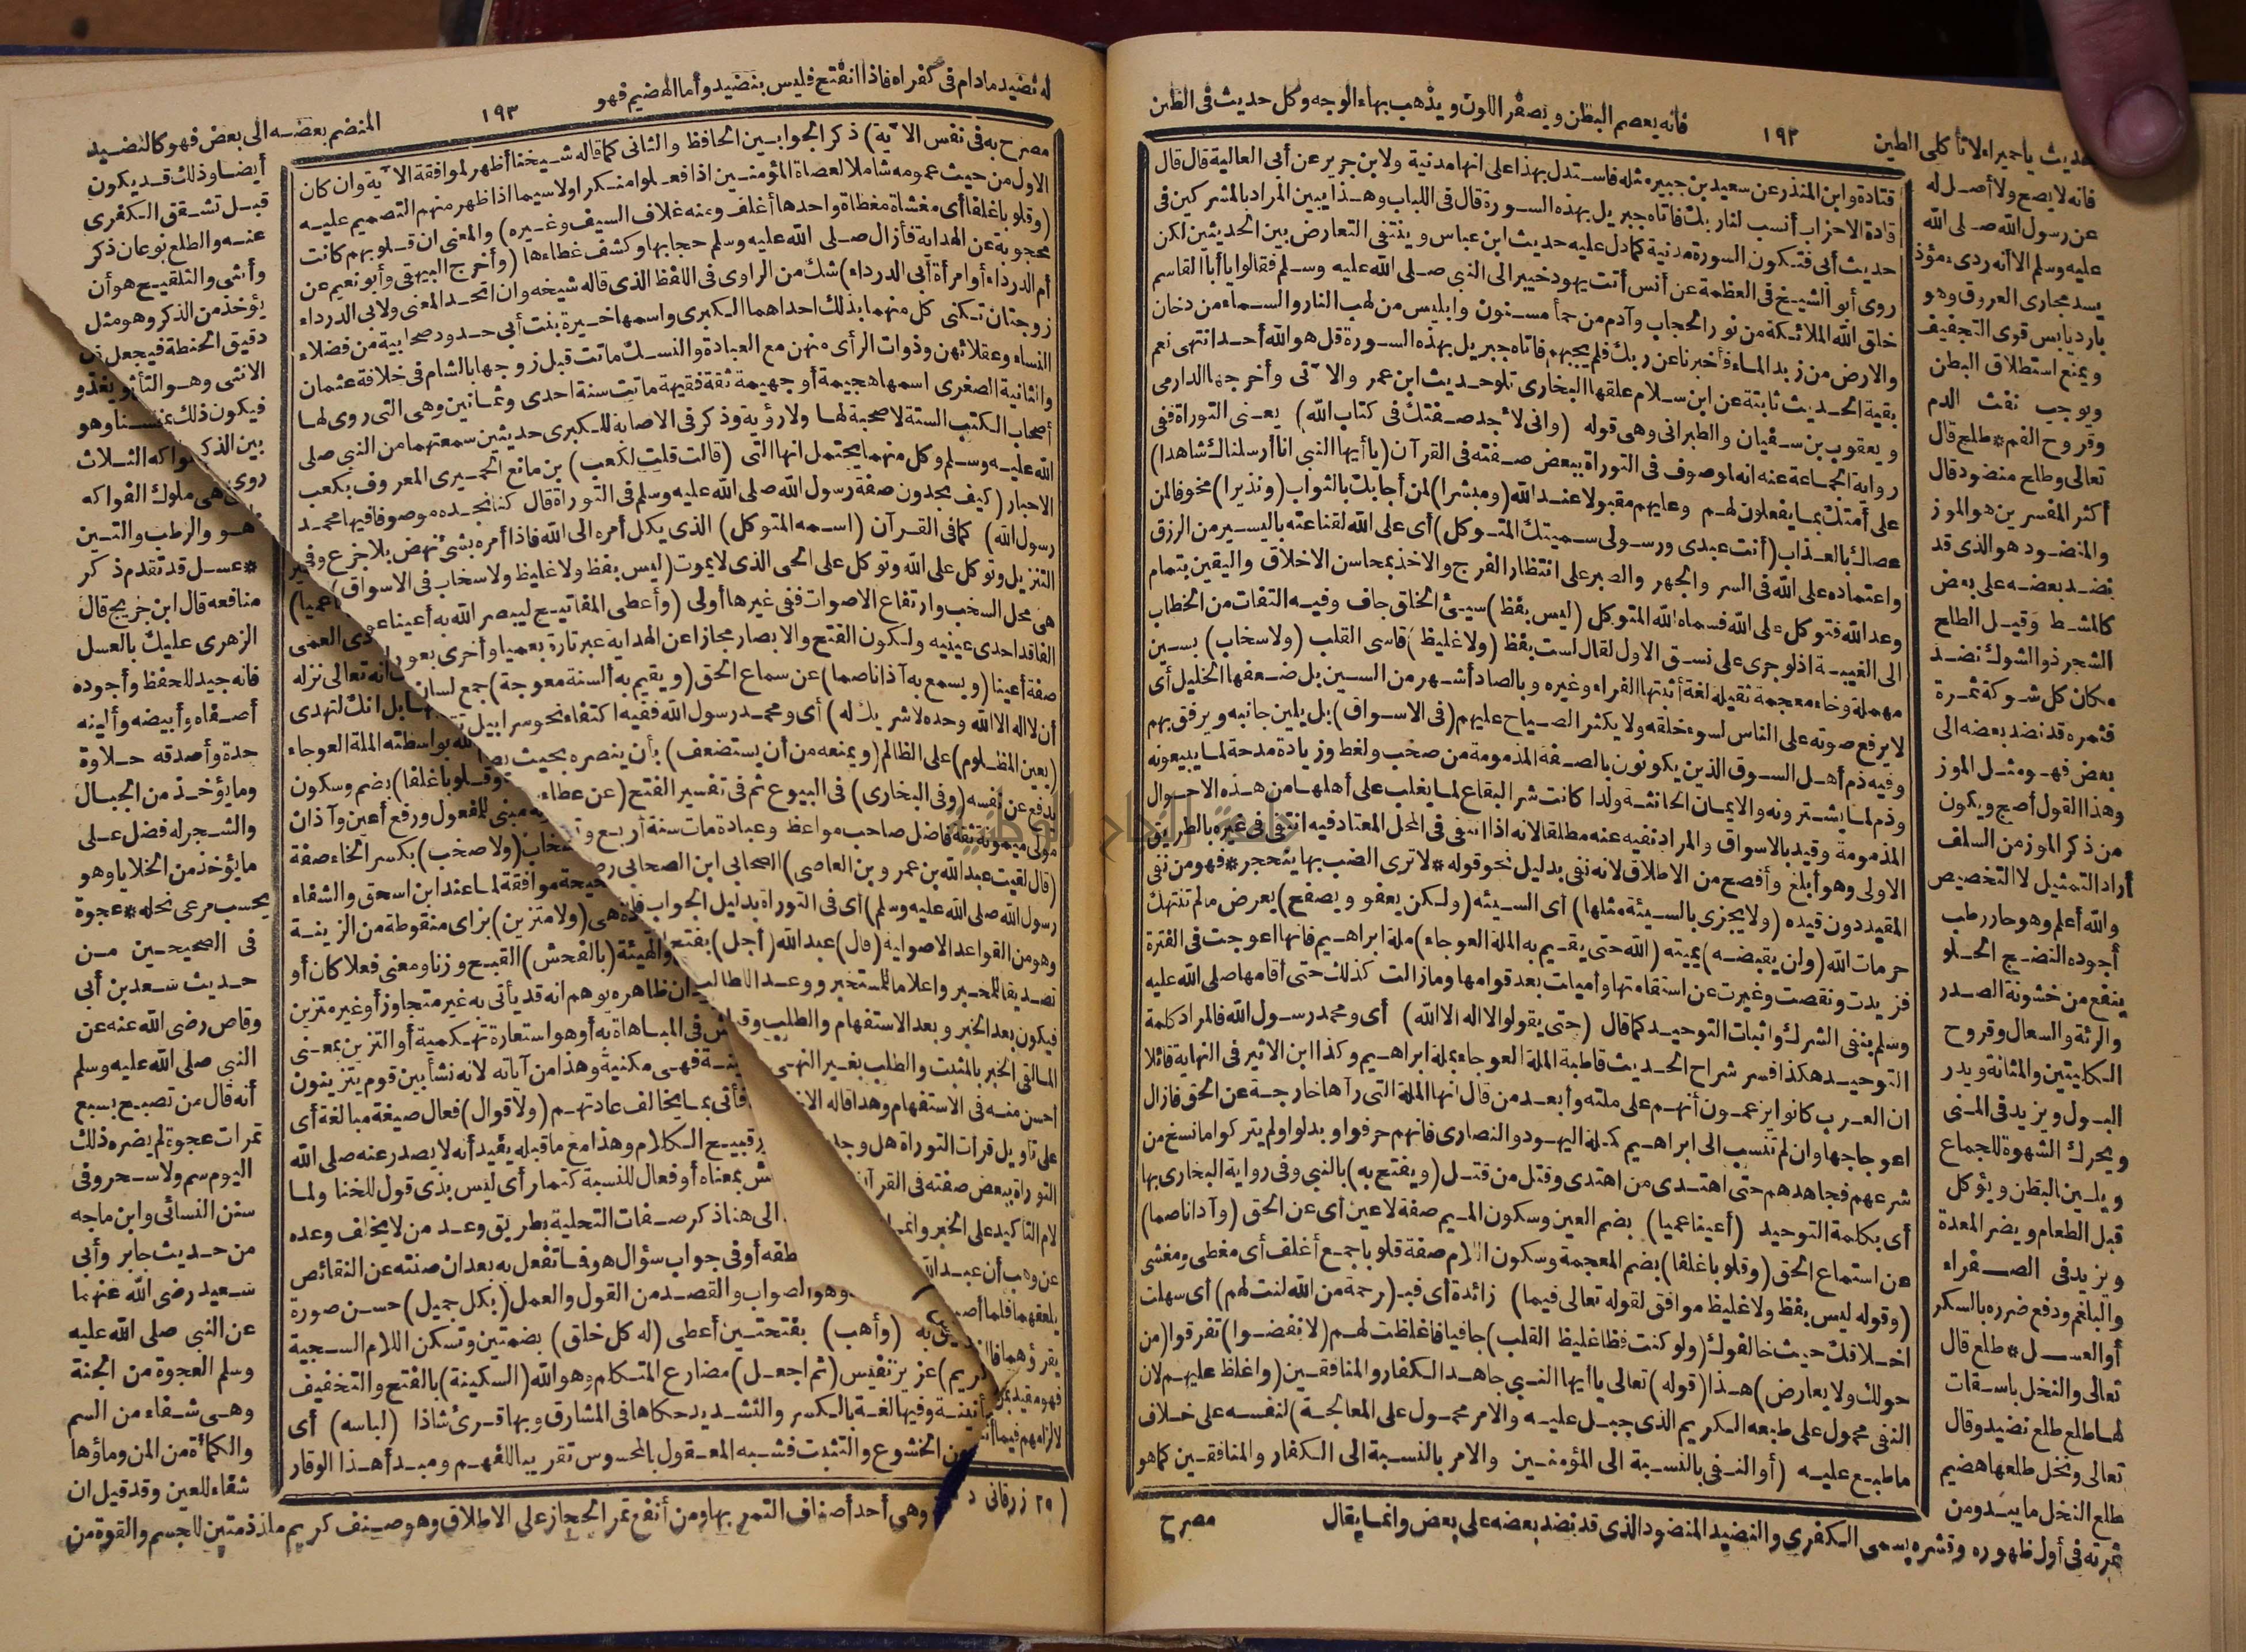 فانه يعصم البطن ويصفر اللون ويذهب بهاء الوجه وكل حديث فى الطين
١٩٢
حديث ياحميراء لا تأكلى الطين
فانه لا يصح ولا أصل له
عن رسول الله صلى الله
عليه وسلم الا أنه ردىء مؤذ
يسد مجارى العروق وهو
بارد يابس قوى التجفيف
ويمنع استطلاق البطن
ويوجب نفث الدم
وقروح الفم * طلع قال
تعالى وطلح منضود قال
أكثر المفسرين هو الموز
والمنضود هو الذى قد
نضد بعضه على بعض
كالمشط وقيل الطلح
الشجر ذو الشوك نضد
مكان كل شوكة ثمرة
فثمره قد نضد بعضه الى
بعض فهو مثل الموز
وهذا القول أصح ويكون
من ذكر الموز من السلف
أراد التمثيل لا التخصيص
والله أعلم وهو حار رطب
أجوده النضيج الحلو
ينفع من خشونة الصدر
والرئة والسعال وقروح
الكليتين والمثانة ويدر
البول ويزيد فى المنى
ويحرك الشهوة للجماع
ويلين البطن ويؤكل
قبل الطعام ويضر المعدة
ويزيد فى الصفراء
والبلغم ودفع ضرره بالسكر
أو العسل * طلع قال
تعالى والنخل باسقات
لها طلع نضيد وقال
تعالى ونخل طلعها هضيم
طلع النخل ما يبدو من
ثمرته فى أول ظهوره وقشره يسمى الكفرى والنضيد المنضود الذى قد نضد بعضه على بعض وانما يقال
قتادة وابن المنذر عن سعيد بن جبير مثله فاستدل بهذا على انها مدنية ولابن جرير عن أبى العالية قال قال
قادة الاحزاب أنسب لنا ربك فأتاه جبريل بهذه السورة قال فى اللباب وهذا يبين المراد بالمشركين فى
حديث أبى فتكون السورة مدنية كما دل عليه حديث ابن عباس وينتفى التعارض بين الحديثين لكن
روى أبو الشيخ فى العظمة عن أنس أتت يهود خيبر الى النبى صلى الله عليه وسلم فقالوا يا أبا القاسم
خلق الله الملائكة من نور الحجاب وآدم من حمأ مسنون وابليس من لهب النار والسماء من دخان
والارض من زبد الماء فأخبرنا عن ربك فلم يجبهم فأتاه جبريل بهذه السورة قل هو الله أحد انتهى نعم
بقية الحديث ثابتة عن ابن سلام علقها البخارى تلو حديث ابن عمر والآتى وأخرجها الدارمى
ويعقوب بن سفيان والطبرانى وهى قوله (وانى لأجد صفتك فى كتاب الله) يعنى التوراة ففى
رواية الجماعة عنه انه لموصوف فى التوراة ببعض صفته فى القرآن (يا أيها النبى انا أرسلناك شاهدا)
على أمتك بما يفعلون لهم وعليهم مقبولا عند الله (ومبشرا) لمن أجابك بالثواب (ونذيرا) مخوفا لمن
عصاك بالعذاب (أنت عبدى ورسولى سميتك المتوكل) أى على الله لقناعته باليسير من الرزق
واعتماده على الله فى السر والجهر والصبر على انتظار الفرج والاخذ بمحاسن الاخلاق واليقين بتمام
وعد الله فتوكل على الله فسماه الله المتوكل (ليس بفظ) سيئ الخلق جاف وفيه التفات من الخطاب
الى الغيبة اذ لو جرى على نسق الاول لقال لست بفظ (ولا غليظ) قاسى القلب (ولا سخاب) بسين
مهملة وخاء معجمة ثقيلة لغة أثبتها الفراء وغيره وبالصاد أشهر من السين بل ضعفها الخليل أى
لا يرفع صوته على الناس لسوء خلقه ولا يكثر الصياح عليهم (فى الاسواق) بل يلين جانبه ويرفق بهم
وفيه ذم أهل السوق الذين يكونون بالصفة المذمومة من صخب ولغط وزيادة مدحة لما يبيعونه
وذم لما يشترونه والايمان الحانثة ولذا كانت شر البقاع لما يغلب على أهلها من هذه الاحوال
المذمومة وقيد بالاسواق والمراد نفيه عنه مطلقا لانه اذا انتفى فى المحل المعتاد فيه انتفى فى غيره بالطريق
الاولى وهو أبلغ وأفصح من الاطلاق لانه نفى بدليل نحو قوله * لا ترى الضب بها ينجحر * فهو من نفى
المقيد دون قيده (ولا يجزى بالسيئة مثلها) أى السيئة (ولكن يعفو ويصفح) يعرض ما لم تنتهك
حرمات الله (وان يقبضه) يميته (الله حتى يقيم به الملة العوجاء) ملة ابراهيم فانها اعوجت فى الفترة
فزيدت ونقصت وغيرت عن استقامتها وأميلت بعد قوامها وما زالت كذلك حتى أقامها صلى الله عليه
وسلم بنفى الشرك واثبات التوحيد كما قال (حتى يقولوا لا اله الا الله) أى ومحمد رسول الله فالمراد كلمة
التوحيد هكذا فسر شراح الحديث قاطبة الملة العوجاء بملة ابراهيم وكذا ابن الاثير فى النهاية قائلا
ان العرب كانوا يزعمون أنهم على ملته وأبعد من قال انها الملة التى رآها خارجة عن الحق فازال
اعوجاجها وان لم تنسب الى ابراهيم كملة اليهود والنصارى فانهم حرفوا وبدلوا ولم يتركوا ما نسخ من
شرعهم فجاهدهم حتى اهتدى من اهتدى وقتل من قتل (ويفتح به) بالنبى وفى رواية البخارى بها
أى بكلمة التوحيد (أعينا عميا) بضم العين وسكون الميم صفة لاعين أى عن الحق (وآذانا صما)
عن استماع الحق (وقلوبا غلفا) بضم المعجمة وسكون اللام صفة قلوبا جمع أغلف أى مغطى ومغشى
(وقوله ليس بفظ ولا غليظ موافق لقوله تعالى فبما) زائدة أى فبـ (رحمة من الله لنت لهم) أى سهلت
اخلاقك حيث خالفوك (ولو كنت فظا غليظ القلب) جافيا فاغلظت لهم (لانفضوا) تفرقوا (من
حولك ولا يعارض) هذا (قوله) تعالى يا أيها النبى جاهد الكفار والمنافقين (واغلظ عليهم لان
النفى محمول على طبعه الكريم الذى جبل عليه والامر محمول على المعالجة) لنفسه على خلاف
ما طبع عليه (أو النفى بالنسبة الى المؤمنين والامر بالنسبة الى الكفار والمنافقين كما هو
مصرح
له نضيد مادام فى كفراه فاذا انفتح فليس بنضيد وأما الهضيم فهو
١٩٣
المنضم بعضه الى بعض فهو كالنضيد
مصرح به فى نفس الآية) ذكر الجوابين الحافظ والثانى كما قاله شيخنا أظهر لموافقة الآية وان كان
الاول من حيث عمومه شاملا لعصاة المؤمنين اذا فعلوا منكرا ولا سيما اذا ظهر منهم التصميم عليه
(وقلوبا غلفا أى مغشاة مغطاة واحدها أغلف ومنه غلاف السيف وغيره) والمعنى ان قلوبهم كانت
محجوبة عن الهداية فأزال صلى الله عليه وسلم حجابها وكشف غطاءها (وأخرج البيهقى وأبو نعيم عن
أم الدرداء أو امرأة أبى الدرداء) شك من الراوى فى اللفظ الذى قاله شيخه وان اتحد المعنى ولابى الدرداء
زوجتان تكنى كل منهما بذلك احداهما الكبرى واسمها خيرة بنت أبى حدرد صحابية من فضلاء
النساء وعقلائهن وذوات الرأى منهن مع العبادة والنسك ماتت قبل زوجها بالشام فى خلافة عثمان
والثانية الصغرى اسمها هجيمة أو جهيمة ثقة فقيهة ماتت سنة احدى وثمانين وهى التى روى لها
أصحاب الكتب الستة لا صحبة لها ولا رؤية وذكر فى الاصابة للكبرى حديثين سمعتهما من النبى صلى
الله عليه وسلم وكل منهما يحتمل انها التى (قالت قلت لكعب) بن ماتع الحميرى المعروف بكعب
الاحبار (كيف تجدون صفة رسول الله صلى الله عليه وسلم فى التوراة قال كنا نجده موصوفا فيها محمد
رسول الله) كما فى القرآن (اسمه المتوكل) الذى يكل أمره الى الله فاذا أمره بشئ نهض بلا جزع وفى
التنزيل وتوكل على الله وتوكل على الحى الذى لا يموت (ليس بفظ ولا غليظ ولا سخاب فى الاسواق)
هى محل السخب وارتفاع الاصوات ففى غيرها أولى (وأعطى المفاتيح ليبصر الله به أعينا
الفاقد احدى عينيه ولكون الفتح والابصار مجازا عن الهداية عبر تارة بعميا وأخرى بعور
صفة أعينا (ويسمع به آذانا صما) عن سماع الحق (ويقيم به ألسنة معوجة) جمع لسان
أن لا اله الا الله وحده لا شريك له) أى ومحمد رسول الله ففيه اكتفاء نحو سرابيل
(يعين المظلوم) على الظالم (ويمنعه من أن يستضعف) بأن ينصره بحيث
يدفع عن نفسه (وفى البخارى) فى البيوع ثم فى تفسير الفتح (عن عطاء
مولى ميمونة ثقة فاضل صاحب مواعظ وعبادة مات سنة أربع
(قال لقيت عبد الله بن عمرو بن العاصى) الصحابى ابن الصحابى
رسول الله صلى الله عليه وسلم) أى فى التوراة بدليل الجواب
وهو من القواعد الاصولية (قال) عبد الله (أجل)
تصديقا للمخبر واعلاما للمستخبر ووعدا للطالب
فيكون بعد الخبر وبعد الاستفهام والطلب
المالقى الخبر بالمثبت والطلب بغير النهى
احسن منه فى الاستفهام وهذا قاله
على تأويل قرأت التوراة هل وجد
التوراة ببعض صفته فى القرآن
لام التأكيد على الخبر
يعنى العمى
انه تعالى نزله
بل انك لتهدى
بواسطته الملة العوجاء
وقلوبا غلفا) بضم وسكون
مبنى للمفعول ورفع أعين وآذان
سخاب (ولا صخب) بكسر الخاء صفة
موافقة لما عند ابن اسحق والشفاء
(ولا متزين) بزاى منقوطة من الزينة
والهيئة (بالفحش) القبيح وزنا ومعنى فعلا كان أو
ان ظاهره يوهم انه قد يأتى به غير متجاوز أو غير متزين
فى المباهاة به أو هو استعارة تهكمية أو التزين بمعنى
فهى مكنية وهذا من آياته لانه نشأ بين قوم يتزينون
فأتى بما يخالف عادتهم (ولا قوال) فعال صيغة مبالغة أى
قبيح الكلام وهذا مع ما قبله يفيد أنه لا يصدر عنه صلى الله
بمعناه أو فعال للنسبة كتمار أى ليس بذى قول للخنا ولما
الى هنا ذكر صفات التحلية بطريق وعد من لا يخلف وعده
أو فى جواب سؤال هو فما تفعل به بعد ان صنته عن النقائص
وهو الصواب والقصد من القول والعمل (بكل جميل) حسن صورة
(وأهب) بفتحتين أعطى (له كل خلق) بضمتين وتسكن اللام السجية
كريم) عزيز نفيس (ثم اجعل) مضارع المتكلم وهو الله (السكينة) بالفتح والتخفيف
وفيها لغة بالكسر والتشديد حكاها فى المشارق وبها قرئ شاذا (لباسه) أى
من الخشوع والتثبت فشبه المعقول بالمحسوس تقريبا للفهم ومبدأ هذا الوقار
(٢٩ زرقانى
أيضا وذلك قد يكون
قبل تشقق الكفرى
عنه والطلع نوعان ذكر
وأنثى والتلقيح هو أن
يؤخذ من الذكر وهو مثل
دقيق الحنطة فيجعل فى
الانثى وهو التأبير
فيكون ذلك
بين الذكر
روى
هى ملوك الفواكه
والرطب والتين
* عسل قد تقدم ذكر
منافعه قال ابن جريج قال
الزهرى عليك بالعسل
فانه جيد للحفظ وأجوده
أصفاه وأبيضه وألينه
حدة وأصدقه حلاوة
وما يؤخذ من الجبال
والشجر له فضل على
ما يؤخذ من الخلايا وهو
بحسب مرعى نحله * عجوة
فى الصحيحين من
حديث سعد بن أبى
وقاص رضى الله عنه عن
النبى صلى الله عليه وسلم
أنه قال من تصبح بسبع
تمرات عجوة لم يضره ذلك
اليوم سم ولا سحر وفى
سنن النسائى وابن ماجه
من حديث جابر وأبى
سعيد رضى الله عنهما
عن النبى صلى الله عليه
وسلم العجوة من الجنة
وهى شفاء من السم
والكمأة من المن وماؤها
شفاء للعين وقد قيل ان
وهى أحد أصناف التمر بها ومن أنفع تمر الحجاز على الاطلاق وهو صنف كريم ملذذ متين للجسم والقوة من